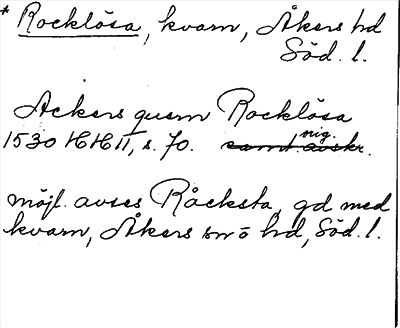 * Rocklösa, kvarn, Åkers hd
Söd. l.
Ackers quern Rocklösa
1530 HH II, s. 70. samt. avskr. orig.
möjl. avses Råcksta, gd med
kvarn, Åkers sn o hd, Söd. l.